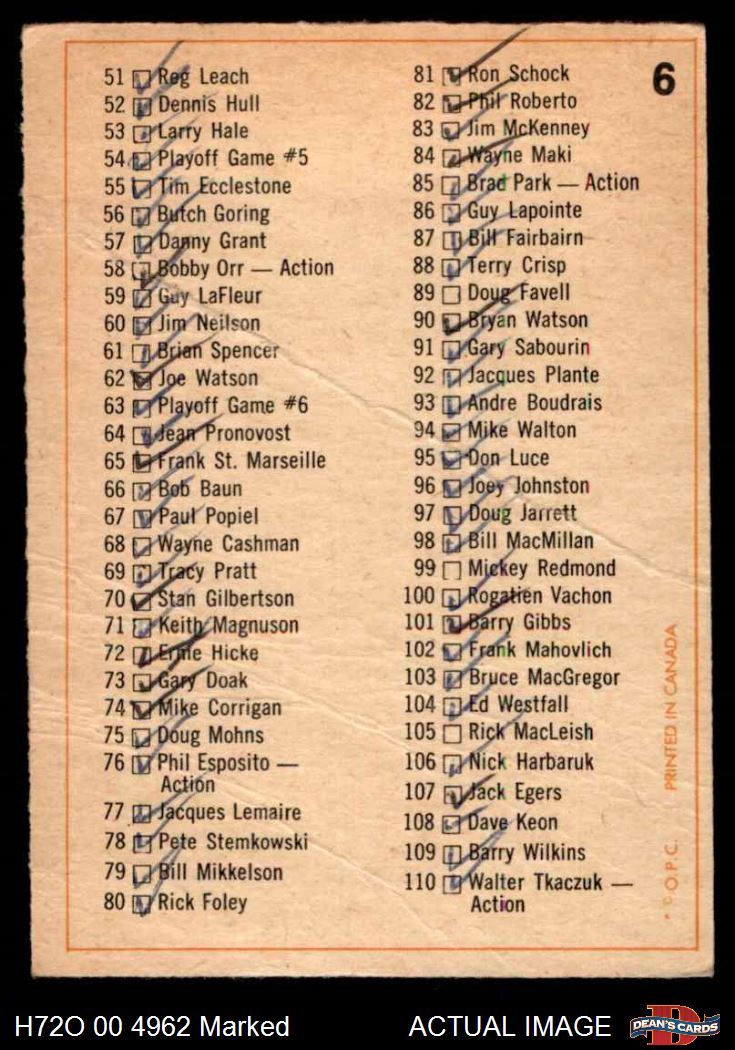 6
51 Reg Leach
52 Dennis Hull
53 Larry Hale
54 Playoff Game #5
55 Tim Ecclestone
56 Butch Goring
57 Danny Grant
58 Bobby Orr — Action
59 Guy LaFleur
60 Jim Neilson
61 Brian Spencer
62 Joe Watson
63 Playoff Game #6
64 Jean Pronovost
65 Frank St. Marseille
66 Bob Baun
67 Paul Popiel
68 Wayne Cashman
69 Tracy Pratt
70 Stan Gilbertson
71 Keith Magnuson
72 Ernie Hicke
73 Gary Doak
74 Mike Corrigan
75 Doug Mohns
76 Phil Esposito —
Action
77 Jacques Lemaire
78 Pete Stemkowski
79 Bill Mikkelson
80 Rick Foley
81 Ron Schock
82 Phil Roberto
83 Jim McKenney
84 Wayne Maki
85 Brad Park — Action
86 Guy Lapointe
87 Bill Fairbairn
88 Terry Crisp
89 Doug Favell
90 Bryan Watson
91 Gary Sabourin
92 Jacques Plante
93 Andre Boudrais
94 Mike Walton
95 Don Luce
96 Joey Johnston
97 Doug Jarrett
98 Bill MacMillan
99 Mickey Redmond
100 Rogatien Vachon
101 Barry Gibbs
102 Frank Mahovlich
103 Bruce MacGregor
104 Ed Westfall
105 Rick MacLeish
106 Nick Harbaruk
107 Jack Egers
108 Dave Keon
109 Barry Wilkins
110 Walter Tkaczuk —
Action
* © O.P.C. PRINTED IN CANADA
H72O 00 4962 Marked
ACTUAL IMAGE
DEAN'S CARDS